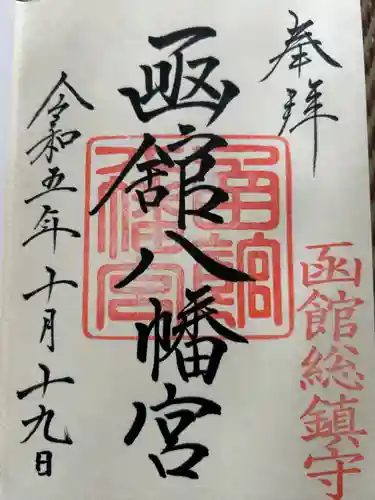 奉拝
函館総鎮守
函館八幡宮
函館八幡宮
令和五年十月十九日